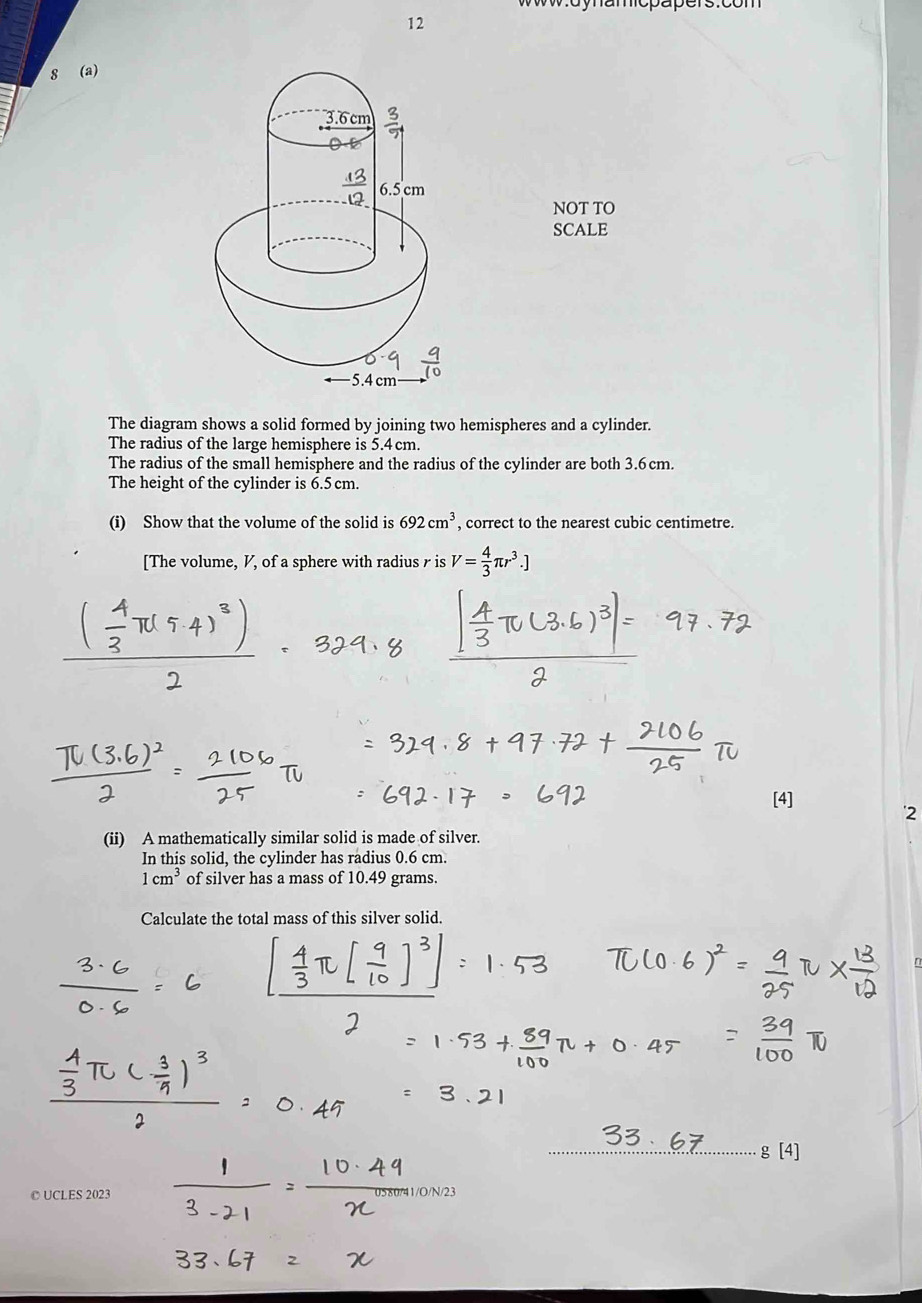 www.dynamicpapers.com
12
8 (a)
3.6 cm
3/5
0.6
13/12
6.5 cm
NOT TO
SCALE
0.9 9/10
5.4 cm
The diagram shows a solid formed by joining two hemispheres and a cylinder.
The radius of the large hemisphere is 5.4 cm.
The radius of the small hemisphere and the radius of the cylinder are both 3.6 cm.
The height of the cylinder is 6.5 cm.
(i) Show that the volume of the solid is 692 cm³, correct to the nearest cubic centimetre.
[The volume, V, of a sphere with radius r is V = 4/3 πr³.]
(4/3 π(5.4)³)/2 = 329.8 [4/3 π(3.6)³]/2 = 97.72
π(3.6)²/2 = 2106/25 π = 329.8 + 97.72 + 2106/25 π
= 692.17 = 692
[4]
(ii) A mathematically similar solid is made of silver.
In this solid, the cylinder has radius 0.6 cm.
1 cm³ of silver has a mass of 10.49 grams.
Calculate the total mass of this silver solid.
3.6/0.6 = 6 [4/3 π[9/10]³]/2 = 1.53 π(0.6)² = 9/25 π × 13/12
= 1.53 + 39/100 π + 0.45 = 39/100 π
4/3 π(3/5)³/2 = 0.45 = 3.21
33.67 g [4]
1/3.21 = 10.49/x
© UCLES 2023 0580/41/O/N/23
33.67 = x
2